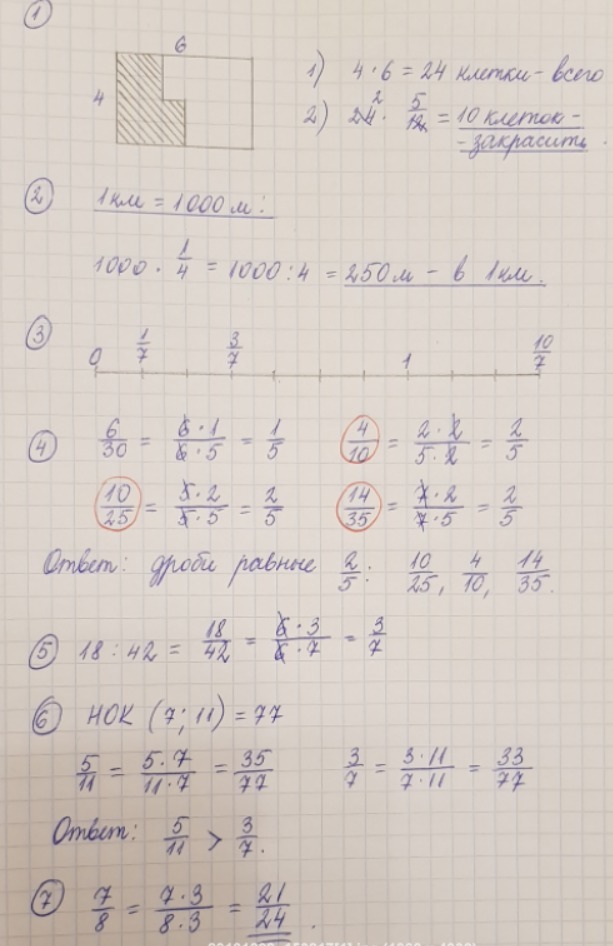 1
6
4
1) 4 · 6 = 24 клетки - всего
2) 24² · 5/12 = 10 клеток -
- закрасить.
2 1 км = 1000 м:
1000 · 1/4 = 1000 : 4 = 250 м - в 1 км.
3 0 1/7 3/7 1 10/7
4 6/30 = 6·1/6·5 = 1/5 4/10 = 2·2/5·2 = 2/5
10/25 = 5·2/5·5 = 2/5 14/35 = 7·2/7·5 = 2/5
Ответ: дроби равные 2/5: 10/25, 4/10, 14/35.
5 18 : 42 = 18/42 = 6·3/6·7 = 3/7
6 НОК (7; 11) = 77
5/11 = 5·7/11·7 = 35/77 3/7 = 3·11/7·11 = 33/77
Ответ: 5/11 > 3/7.
7 7/8 = 7·3/8·3 = 21/24.